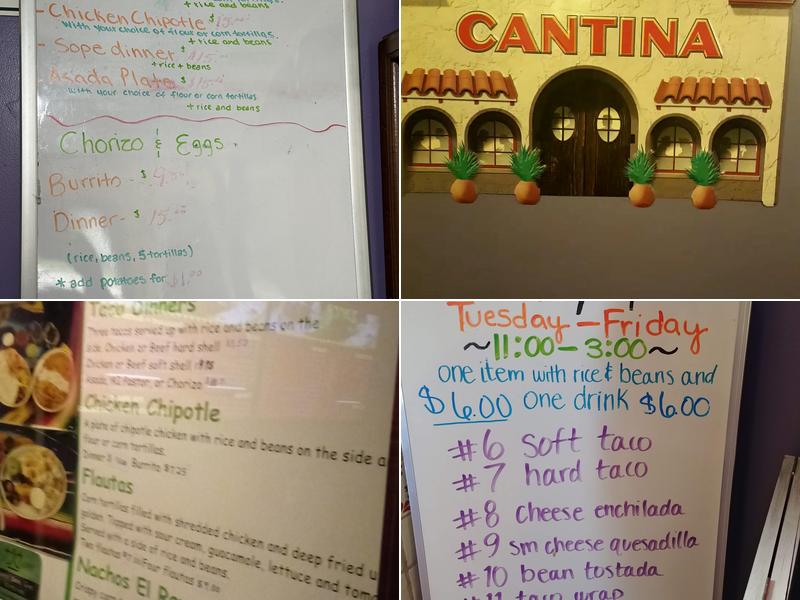 + rice and beans
- Chicken Chipotle
With your choice of flour or corn tortillas.
+ rice and beans
- Sope dinner $15
+ rice + beans
Asada Plate $
with your choice of flour or corn tortillas
+ rice and beans
Chorizo & Eggs
Burrito - $9
Dinner - $15
(rice, beans, 5 tortillas)
* add potatoes for $1.00
CANTINA
Taco Dinners
Three tacos served up with rice and beans on the
side. Chicken or Beef hard shell
Chicken or Beef soft shell
Asada, Al Pastor, or Chorizo
Chicken Chipotle
A plate of chipotle chicken with rice and beans on the side a
flour or corn tortillas.
Burrito $7.25
Flautas
Corn tortillas filled with shredded chicken and deep fried u
golden. Topped with sour cream, guacamole, lettuce and toma
Served with a side of rice and beans.
Two flautas Four flautas $9.00
Nachos El R
Tuesday - Friday
~11:00 - 3:00~
one item with rice & beans and
$6.00 one drink $6.00
#6 soft taco
#7 hard taco
#8 cheese enchilada
#9 sm cheese quesadilla
#10 bean tostada
#11 taco wrap